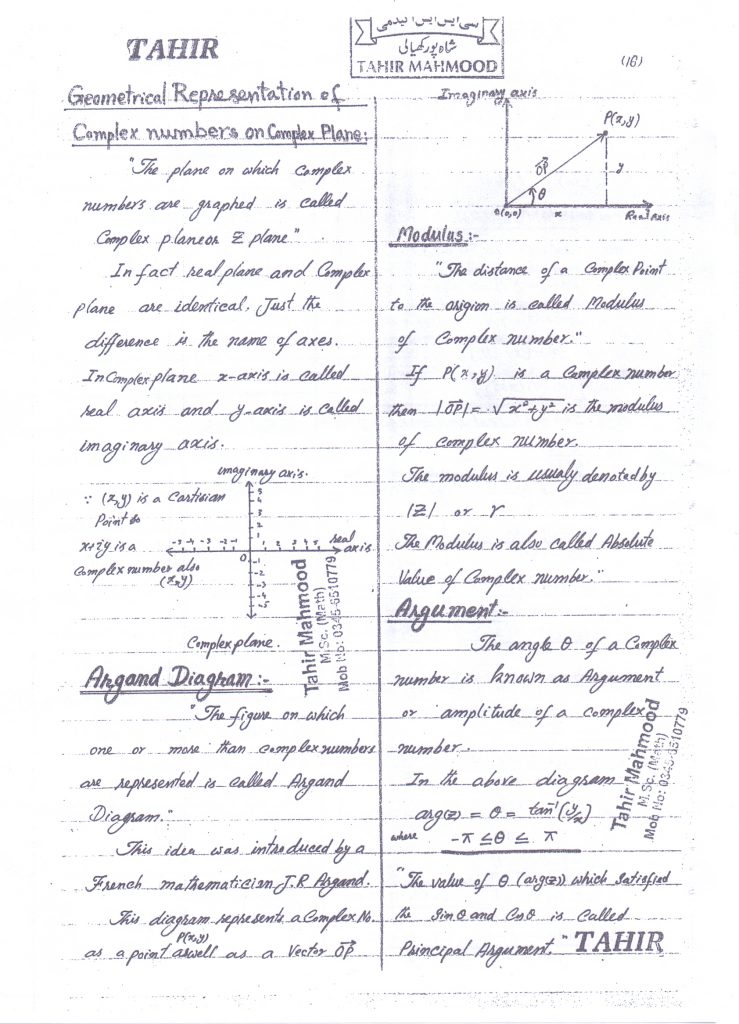 TAHIR
سی ایس ایس اکیڈمی
شاہ پور کھیالی
TAHIR MAHMOOD
(16)
Geometrical Representation of
Complex numbers on Complex Plane:
"The plane on which Complex
numbers are graphed is called
Complex plane or Z plane"
In fact real plane and Complex
plane are identical. Just the
difference is the name of axes.
In Complex plane x-axis is called
real axis and y-axis is called
imaginary axis.
imaginary axis.
∵ (x,y) is a Cartisian
Point so
x+iy is a
Complex number also
(x,y)
-5 -4 -3 -2 -1
1 2 3 4 5
real
axis
0
Complex plane.
Tahir Mahmood
M.Sc. (Math)
Mob No: 0345-6510779
Argand Diagram:-
"The figure on which
one or more than complex numbers
are represented is called Argand
Diagram."
This idea was introduced by a
French mathematician J.R Argand.
This diagram represents a Complex No.
P(x,y)
as a point aswell as a Vector OP
Imaginary axis
P(x,y)
OP
y
θ
0(0,0)
x
Real Axis
Modulus:-
"The distance of a Complex Point
to the origion is called Modulus
of Complex number."
If P(x,y) is a Complex number
then |OP| = √x²+y² is the modulus
of complex number.
The modulus is usualy denoted by
|Z| or r
The Modulus is also called Absolute
Value of Complex number."
Argument:-
The angle θ of a Complex
number is known as Argument
or amplitude of a complex
number.
In the above diagram
arg(z) = θ = tan⁻¹(y/x)
where -π ≤ θ ≤ π
Tahir Mahmood
M.Sc. (Math)
Mob No: 0345-6510779
"The value of θ (arg(z)) which satisfied
the Sinθ and Cosθ is Called
Principal Argument."
TAHIR